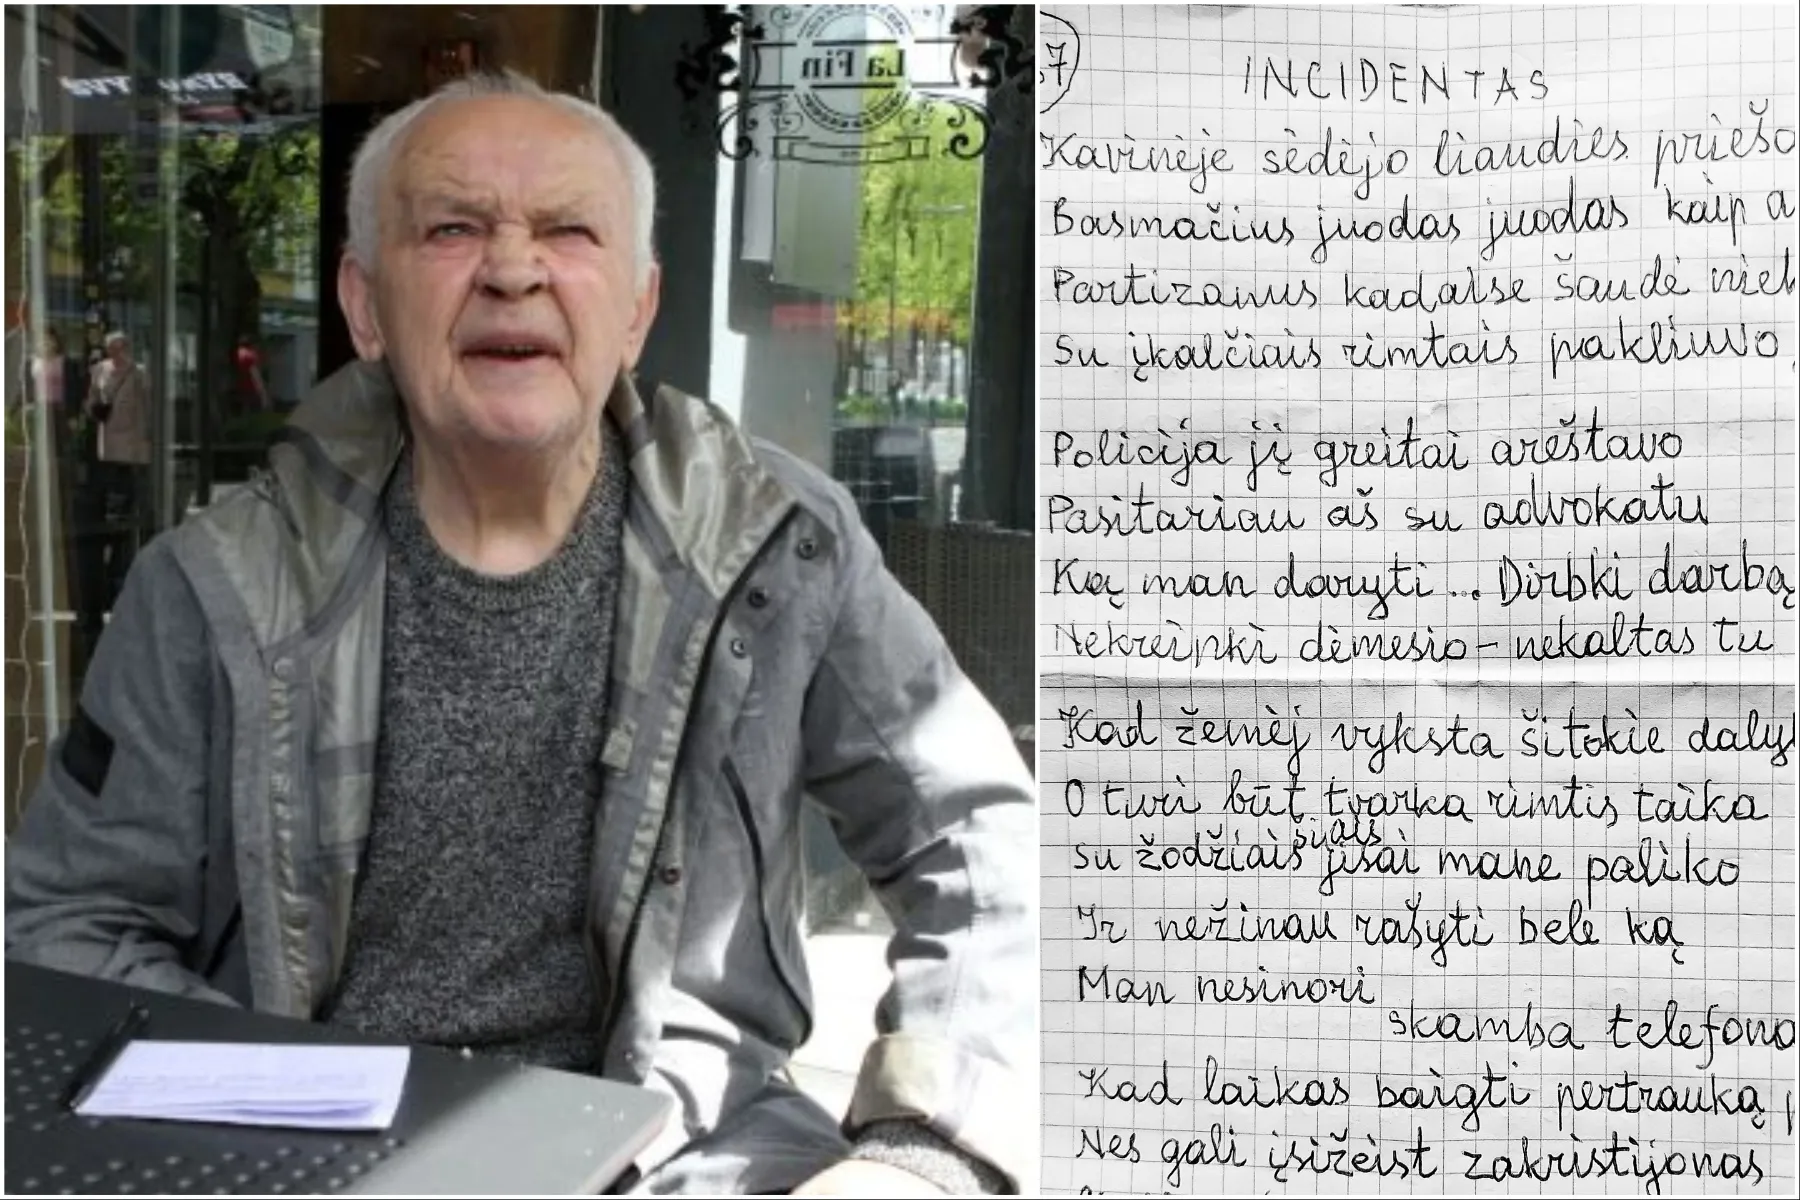 La Fin
7
INCIDENTAS
Kavinėje sėdėjo liaudies priešo
Basmačius juodas juodas kaip a
Partizanus kadaise šaudė niek
Su įkalčiais rimtais pakliuvo
Policija jį greitai areštavo
Pasitariau aš su advokatu
Ką man daryti... Dirbki darbą
Nekreipki dėmesio – nekaltas tu
Kad žemėj vyksta šitokie daly
O turi būt tvarka rimtis taika
šiais
su žodžiais jisai mane paliko
Ir nežinau rašyti bele ką
Man nesinori
skamba telefono
Kad laikas baigti pertrauką p
Nes gali įsižeist zakristijonas